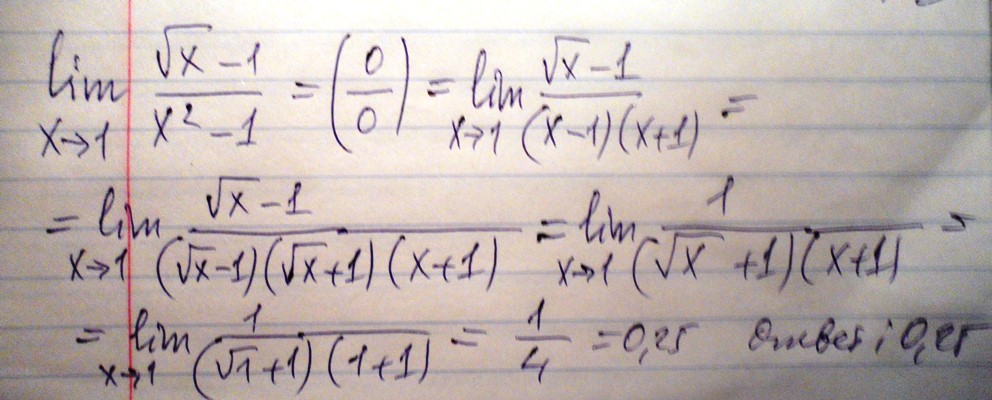 lim x→1 (√x - 1)/(x² - 1) = (0/0) = lim x→1 (√x - 1)/((x-1)(x+1)) =
= lim x→1 (√x - 1)/((√x-1)(√x+1)(x+1)) = lim x→1 1/((√x +1)(x+1)) =
= lim x→1 1/((√1+1)(1+1)) = 1/4 = 0,25 Ответ: 0,25